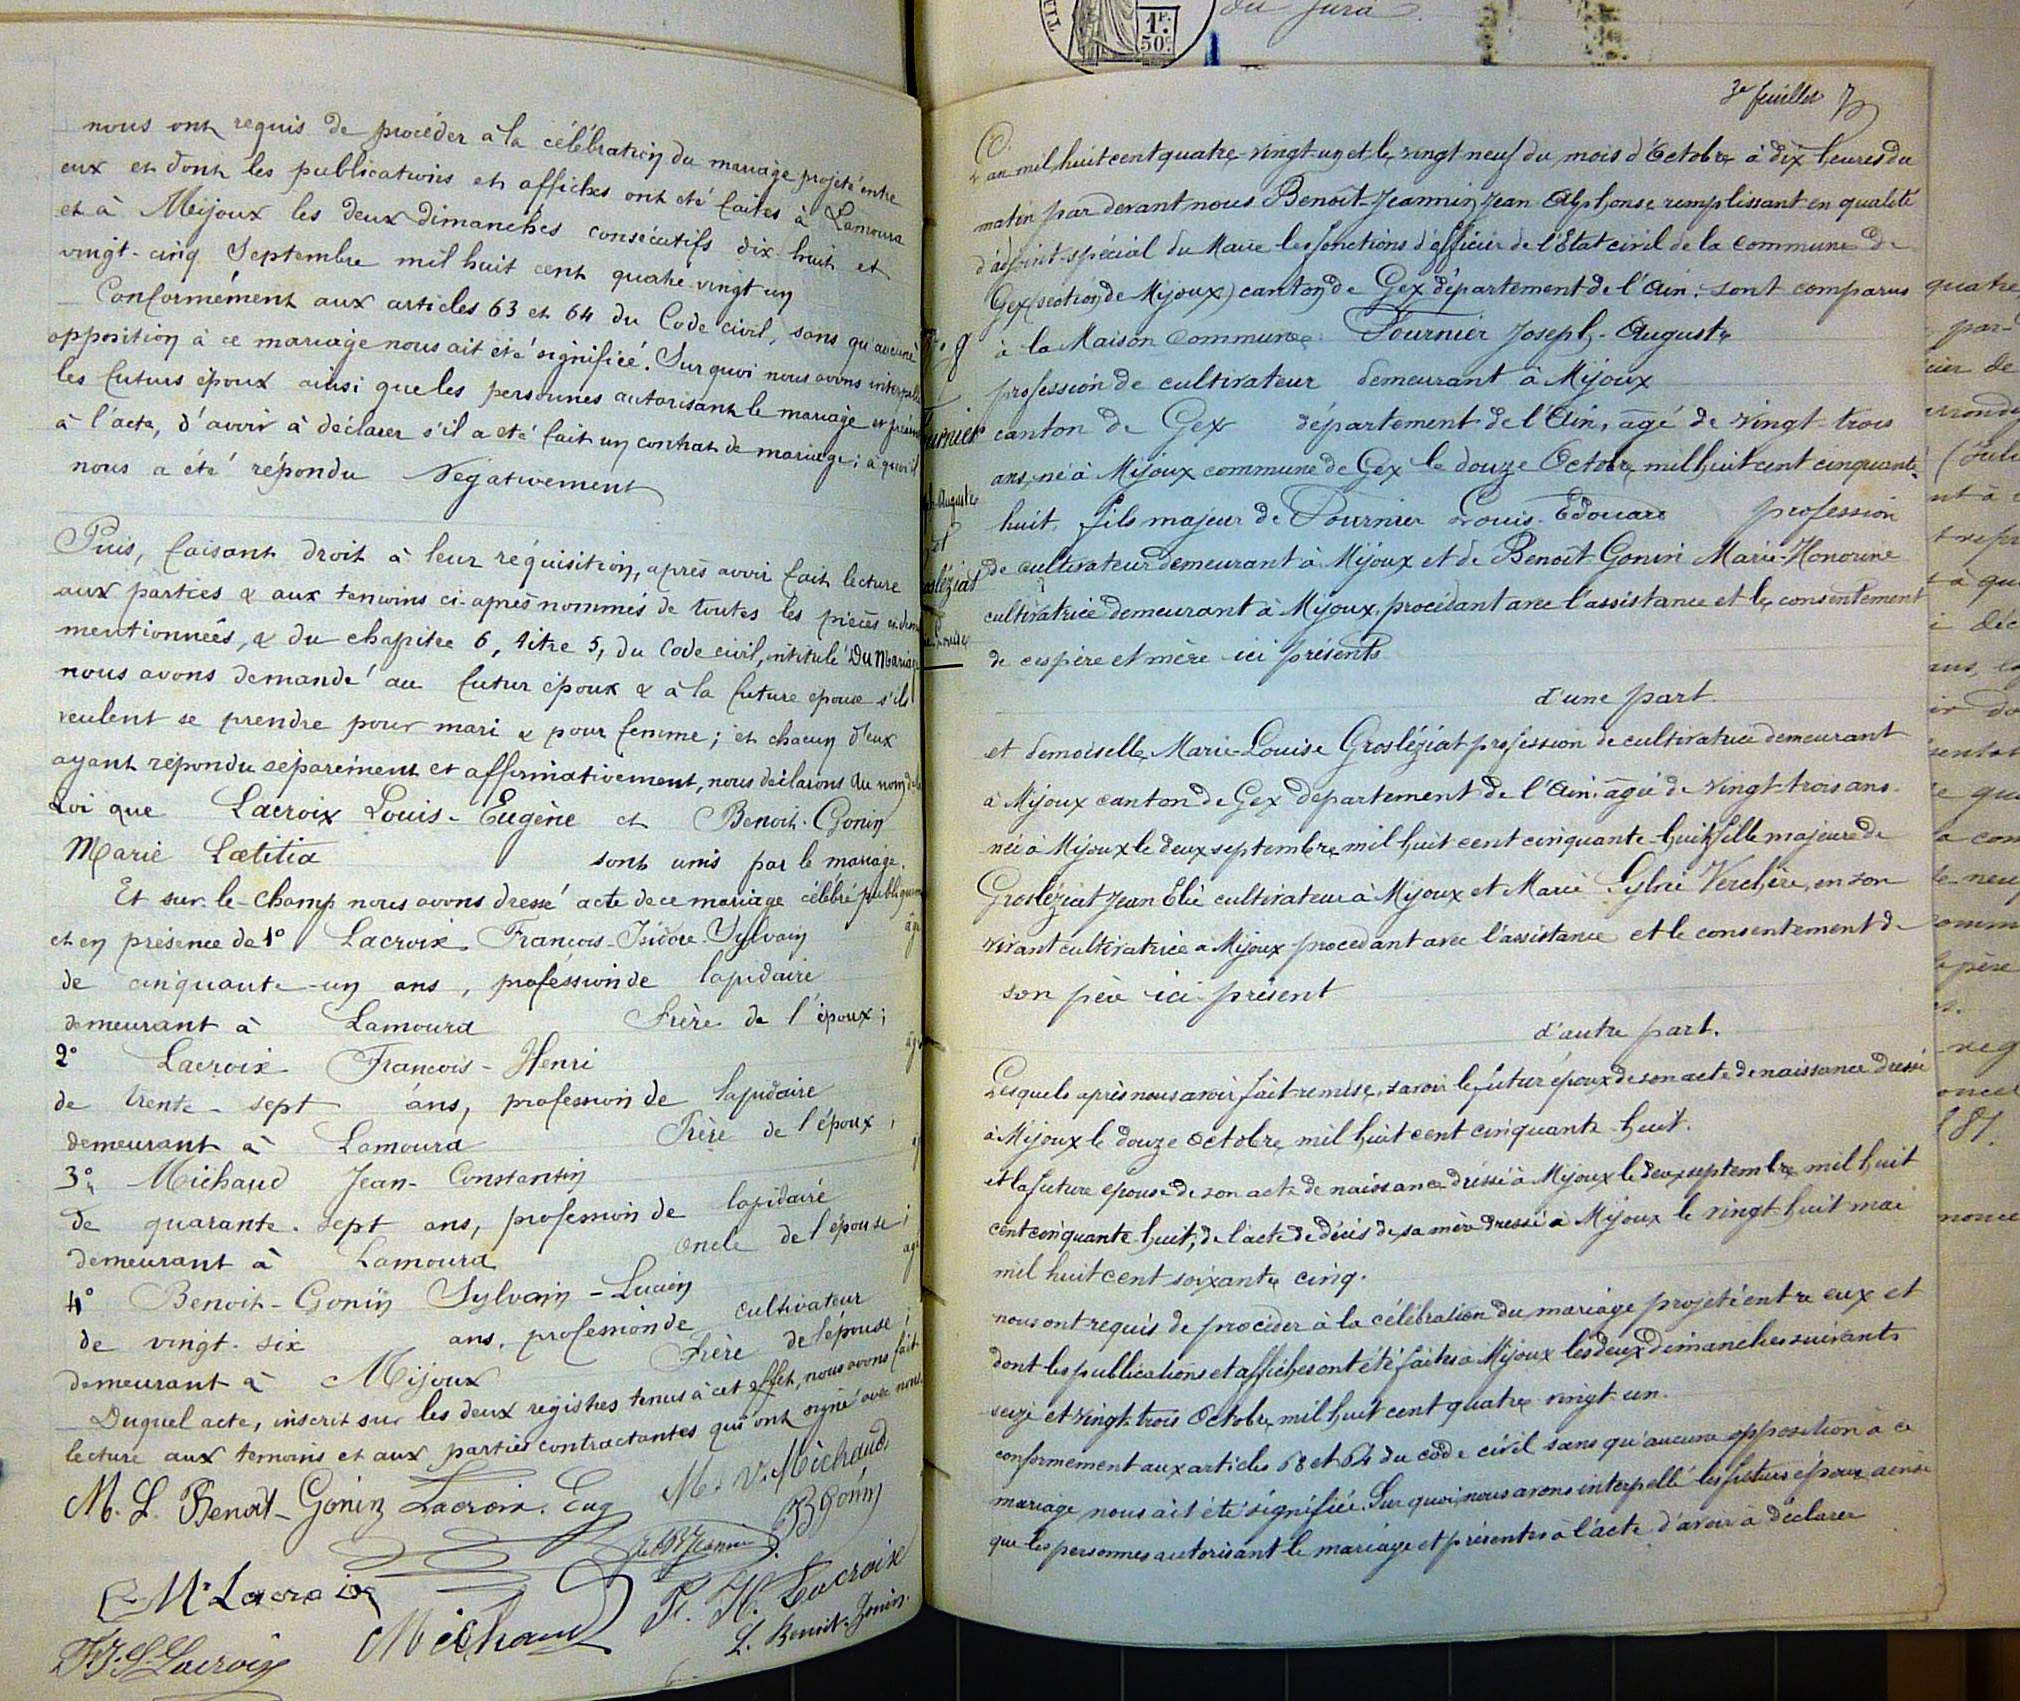 nous ont requis de procéder à la célébration du mariage projeté entre
eux et dont les publications et affiches ont été faites à Lamoura
et à Mijoux les deux dimanches consécutifs dix-huit et
vingt-cinq Septembre mil huit cent quatre vingt un
Conformément aux articles 63 et 64 du Code civil, sans qu'aucune
opposition à ce mariage nous ait été signifiée. Sur quoi nous avons interpellé
les futurs époux ainsi que les personnes autorisant le mariage et présentes
à l'acte, d'avoir à déclarer s'il a été fait un contrat de mariage; à quoi il
nous a été répondu Négativement
Puis, faisant droit à leur réquisition, après avoir fait lecture
aux parties & aux temoins ci-après nommés de toutes les pièces ci-dessus
mentionnées, & du chapitre 6, titre 5, du Code civil, intitulé Du Mariage
nous avons demandé au futur époux & à la future épouse s'ils
veulent se prendre pour mari & pour femme; et chacun d'eux
ayant répondu séparément et affirmativement, nous déclarons Au nom de la
Loi que Lacroix Louis-Eugène et Benoit-Gonin
Marie Lætitia sont unis par le mariage.
Et sur-le-champ nous avons dressé acte de ce mariage célébré publiquement
et en présence de 1° Lacroix François-Isidore-Sylvain
de cinquante-un ans, profession de lapidaire
demeurant à Lamoura Frère de l'époux;
2° Lacroix François-Henri
de trente-sept ans, profession de lapidaire
demeurant à Lamoura Frère de l'époux;
3° Michaud Jean-Constantin
de quarante-sept ans, profession de lapidaire
demeurant à Lamoura Oncle de l'épouse;
4° Benoit-Gonin Sylvain-Lucien
de vingt-six ans, profession de cultivateur
demeurant à Mijoux Frère de l'épouse;
Duquel acte, inscrit sur les deux registres tenus à cet effet, nous avons fait
lecture aux temoins et aux parties contractantes qui ont signé avec nous.
M. L. Benoit-Gonin Lacroix. Eug M. V. Michaud
B Gonin
Lacroix
F. H. Lacroix
F. I. S. Lacroix Michaud L. Benoit-Gonin.
du Jura.
1F. 50c.
3e feuillet
L'an mil huit cent quatre-vingt-un et le vingt neuf du mois d'Octobre à dix heures du
matin par devant nous Benoit-Jeannin Jean Alphonse remplissant en qualité
d'adjoint spécial du Maire les fonctions d'officier de l'Etat civil de la Commune de
Gex (section de Mijoux) canton de Gex département de l'Ain. sont comparus
à la Maison Commune Fournier Joseph-Auguste
profession de cultivateur demeurant à Mijoux
canton de Gex département de l'Ain, âgé de vingt-trois
ans, né à Mijoux commune de Gex le douze Octobre mil huit cent cinquante-
huit, fils majeur de Fournier Louis-Edouard profession
de cultivateur demeurant à Mijoux et de Benoit-Gonin Marie-Honorine
cultivatrice demeurant à Mijoux, procédant avec l'assistance et le consentement
de ces père et mère ici présents
d'une part.
et demoiselle Marie-Louise Grosléziat profession de cultivatrice demeurant
à Mijoux canton de Gex département de l'Ain. agée de vingt-trois ans.
née à Mijoux le deux septembre mil huit cent cinquante-huit, fille majeure de
Grosléziat Jean Elie cultivateur à Mijoux et Marie Sylvie Verchère, en son
vivant cultivatrice à Mijoux procédant avec l'assistance et le consentement de
son père ici présent
d'autre part.
Lesquels après nous avoir fait remise, savoir le futur époux de son acte de naissance dressé
à Mijoux le douze Octobre mil huit cent cinquante huit.
et la future épouse de son acte de naissance dressé à Mijoux le deux septembre mil huit
cent cinquante-huit, de l'acte de décès de sa mère dressé à Mijoux le vingt-huit mai
mil huit cent soixante cinq.
nous ont requis de procéder à la célébration du mariage projeté entre eux et
dont les publications et affiches ont été faites à Mijoux les deux dimanches suivants
seize et vingt-trois Octobre mil huit cent quatre vingt-un.
conformément aux articles 63 et 64 du code civil sans qu'aucune opposition à ce
mariage nous ait été signifiée. Sur quoi nous avons interpellé les futurs époux ainsi
que les personnes autorisant le mariage et présentes à l'acte d'avoir à déclarer